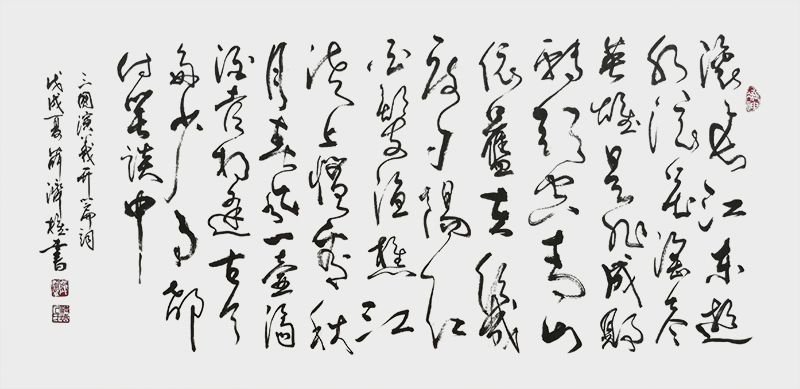 滚滚长江东逝
水浪花淘尽
英雄是非成败
转头空青山
依舊在幾
度夕陽红
白髮渔樵江
渚上惯看秋
月春风一壶濁
酒喜相逢古今
多少事都
付笑谈中
三國演義开篇词
戊戌夏薛書